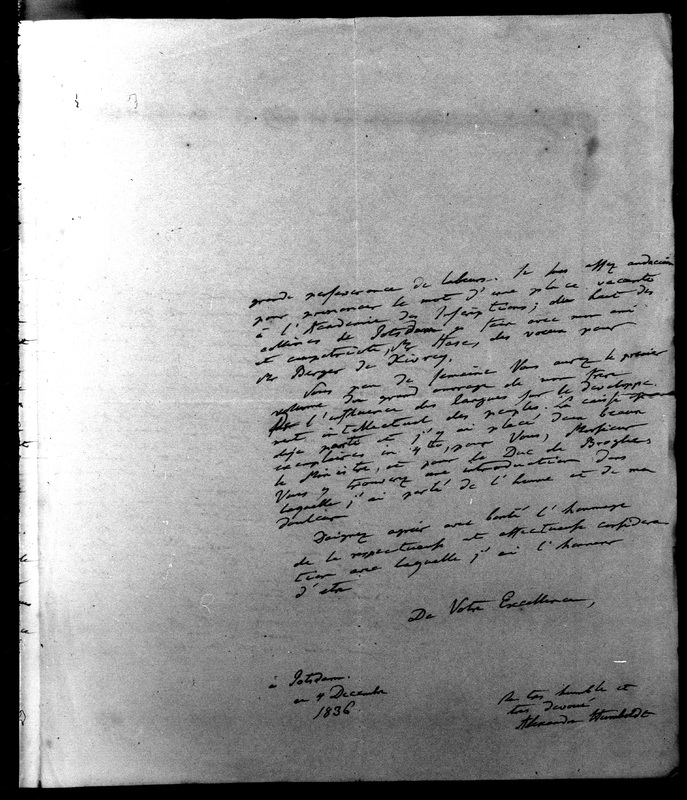 grande perseverance de labeurs. Je suis assez audacieux
pour prononcer le mot d'une place vacante
à l'Academie des Inscriptions; du haut des
collines de Potsdam je fais avec mon ami
et compatriote, Mr Hase, des voeux pour
Mr Berger de Xivrey.
Sous peu de semaines Vous aurez le premier
volume du grand ouvrage de mon frere
Sur l'influence des langues sur le developpe-
ment intellectuel des peuples. La caisse
deja partie et j'y ai placé deux beaux
exemplaires in 4to, pour Vous, Monsieur
le Ministre, et pour le Duc de Broglie.
Vous y trouverez une introduction dans
laquelle j'ai parlé de l'homme et de ma
douleur
Daignez agreer avec bonté l'hommage
de la respectueuse et affectueuse considera
tion avec laquelle j'ai l'honneur
d'etre
De Votre Excellence,
à Potsdam.
ce 4 Decembre
1836
le tres humble et
tres devoué
Alexandre Humboldt